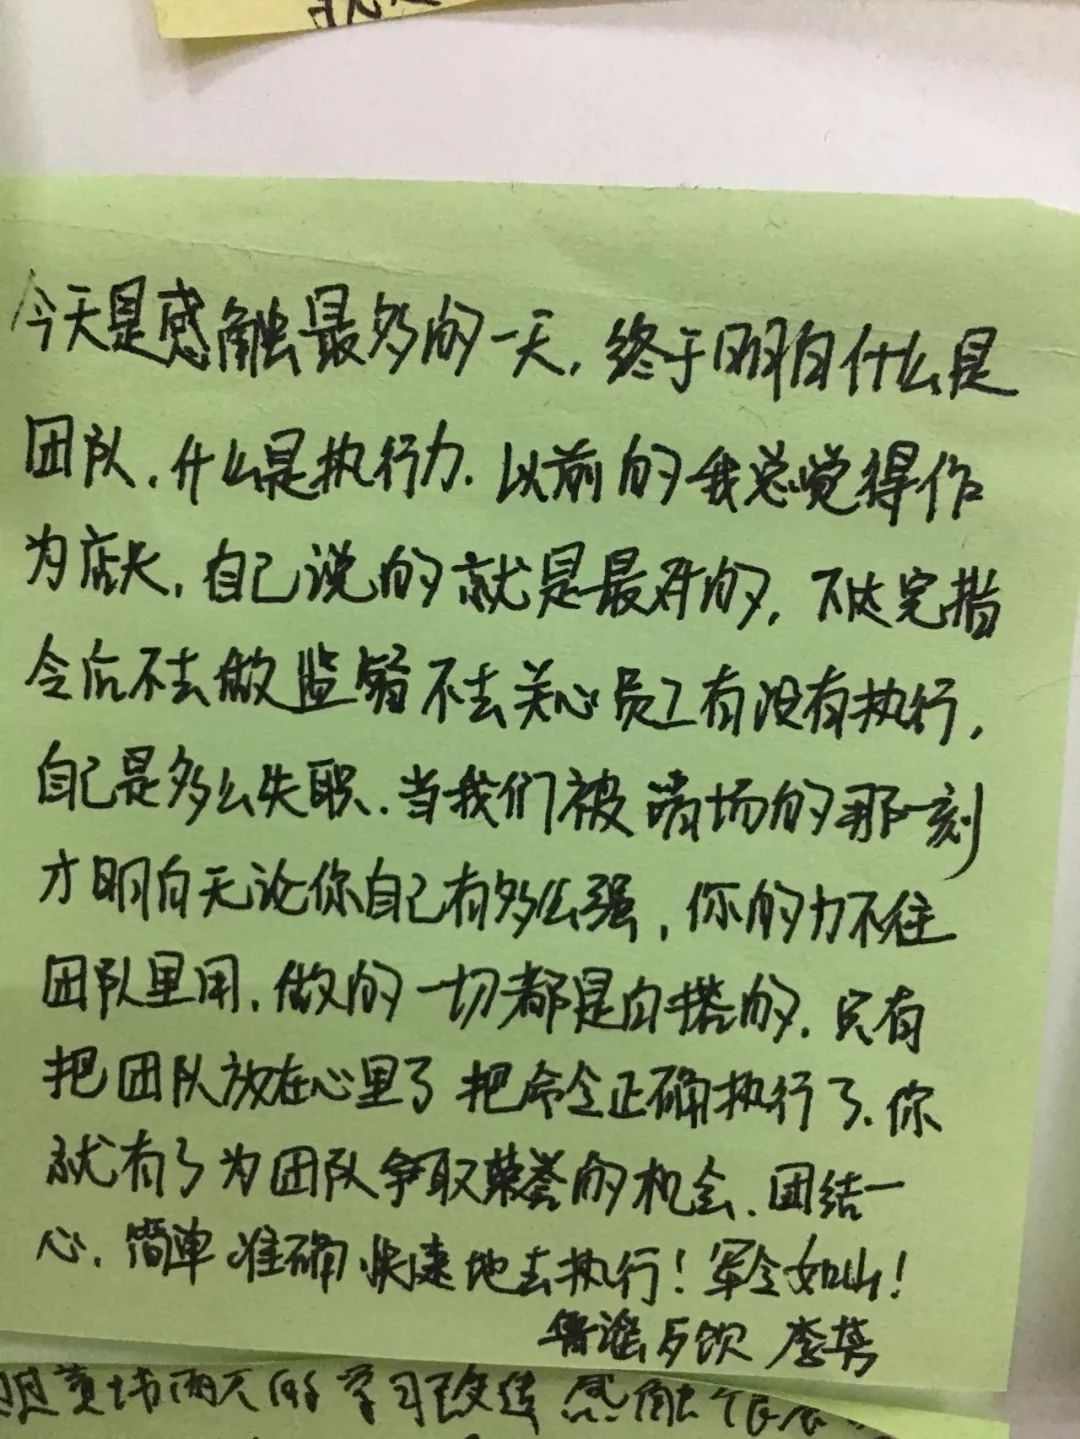 今天是感触最多的一天，终于明白什么是
团队，什么是执行力．以前的我总觉得作
为店长，自己说的就是最好的，下达完指
令后不去做监督不去关心员工有没有执行，
自己是多么失职．当我们被清场的那一刻
才明白无论你自己有多么强，你的力不往
团队里用，做的一切都是白搭的．只有
把团队放在心里了把命令正确执行了．你
就有了为团队争取荣誉的机会．团结一
心．简单准确快速地去执行！军令如山！
鲁谣与饮 李
两天的学习改造感触很